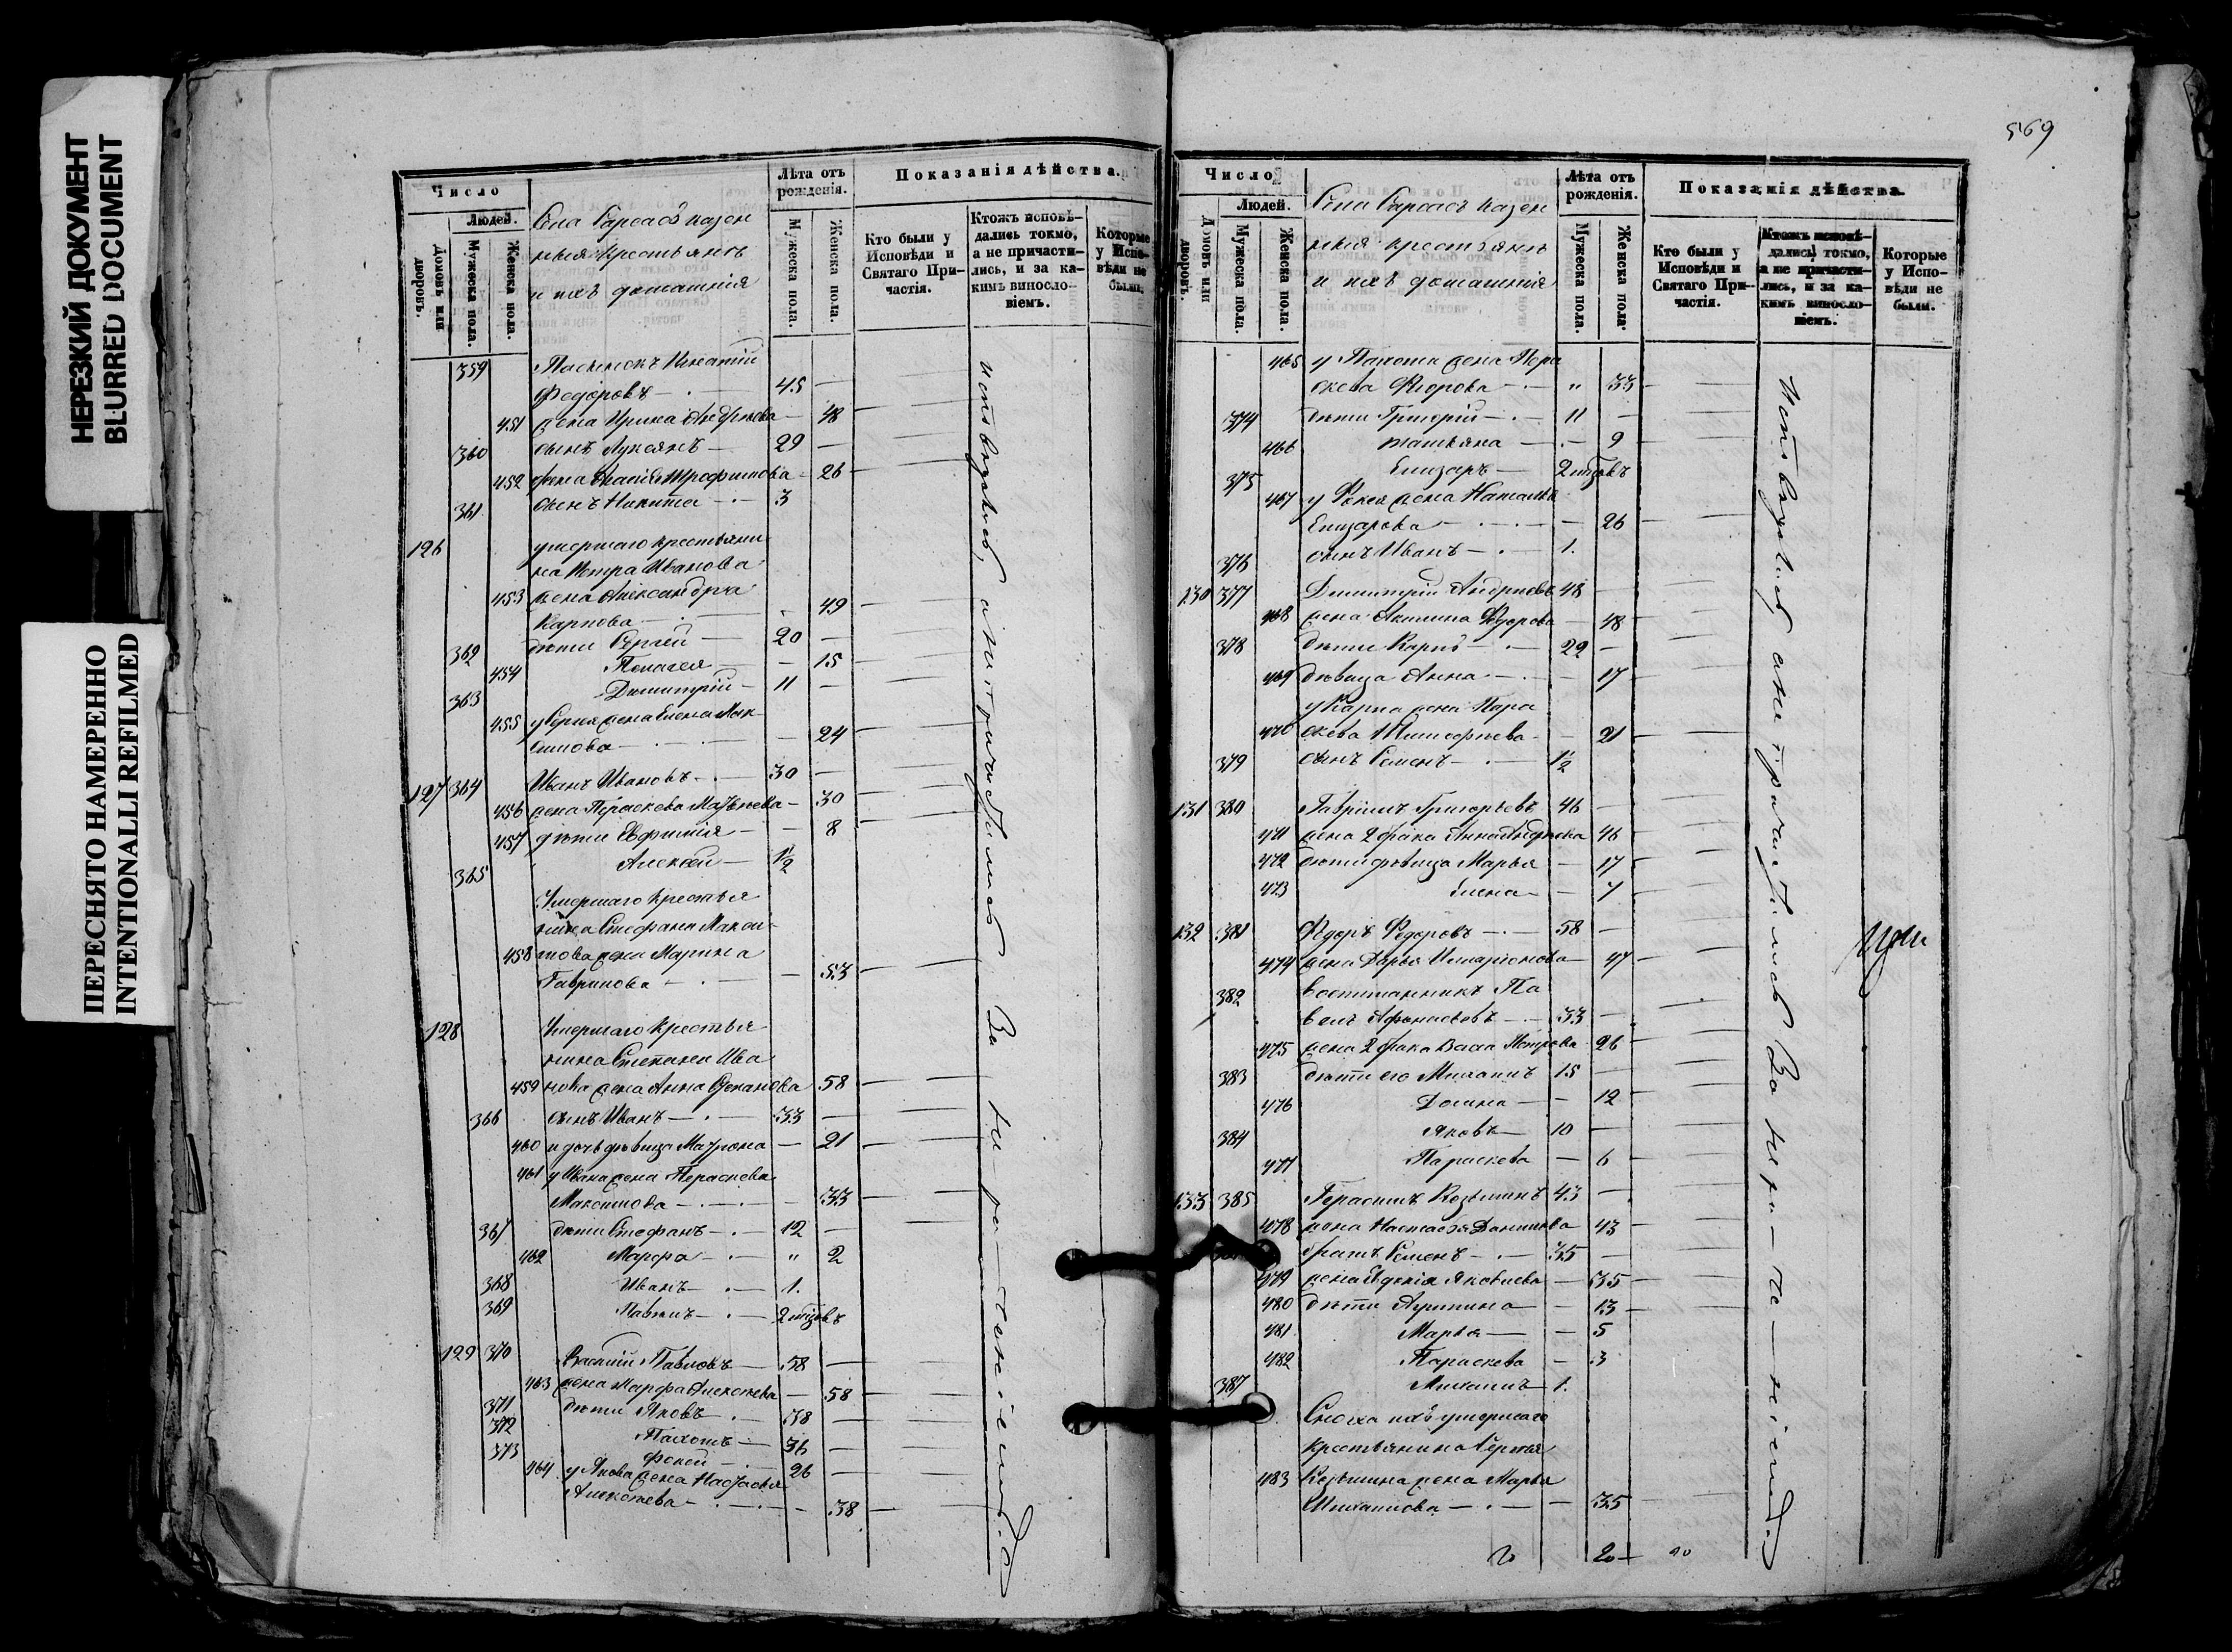 НЕРЕЗКИЙ ДОКУМЕНТ
BLURRED DOCUMENT
ПЕРЕСНЯТО НАМЕРЕННО
INTENTIONALLI REFILMED
Число
Людей.
Домовъ или дворовъ.
Мужеска пола.
Женска пола.
Села Сарсасъ казен
ныя крестьянъ
и ихъ домашнiя
Лѣта отъ рожденія.
Мужеска пола.
Женска пола.
Показанія дѣйства.
Кто были у Исповѣди и Святаго Причастія.
Ктожъ исповѣдались токмо, а не причастились, и за какимъ винословіемъ.
Которые у Исповѣди не были.
359 Пасынокъ Игнатій
Федоровъ 45
451 жена Ирина Андреева 48
360 сынъ Лукоянъ 29
452 жена Трофимова 26
361 сынъ Никита 3
126 умершаго крестьяни
на Петра Иванова
453 жена Александра
Карпова 49
362 дѣти Сергей 20
454 Пелагея 15
363 Димитрій 11
455 у Сергея жена Елена Мак
симова 24
127 364 Иванъ Ивановъ 30
456 жена Параскева Матвеева 30
457 дѣти Евфимія 8
365 Алексей 1/2
Умершаго крестья
нина Стефана Макси
458 мова жена Марина
Гаврилова 53
128 Умершаго крестья
нина Степана Ива
459 нова жена Анна Степанова 58
366 сынъ Иванъ 33
460 и дочь дѣвица Матрона 21
461 у Ивана жена Параскева
Максимова 33
367 дѣти Стефанъ 12
462 Марфа " 2
368 Иванъ 1.
369 Павелъ 2
129 370 Василій Павловъ 58
463 жена Марфа Алексеева 58
371 дѣти Яковъ 38
372 Пахомъ 36
373 Фокей 26
464 у Якова жена Настасья
Алексеева 38
569
Число
Людей.
Домовъ или дворовъ.
Мужеска пола.
Женска пола.
Села Сарсасъ казен
ныя крестьянъ
и ихъ домашнія
Лѣта отъ рожденія.
Мужеска пола.
Женска пола.
Показанія дѣйства.
Кто были у Исповѣди и Святаго Причастія.
Ктожъ исповѣдались токмо, а не причастились, и за какимъ винословіемъ.
Которые у Исповѣди не были.
465 у Пахома жена Пара
скева Федорова " 33
374 дѣти Григорій 11
466 Татьяна 9
375 Елизаръ 2
467 у Фокея жена Наталья
Елизарова 26
376 сынъ Иванъ 1.
130 377 Димитрій Андреевъ 48
468 жена Акилина Федорова 48
378 дѣти Карпъ 22
469 дѣвица Анна 17
у Карпа жена Пара
470 скева Тимофеева 21
379 сынъ Семенъ 1/2
131 380 Гавріилъ Григорьевъ 46
471 жена 2 брака Анна Андреева 46
472 дѣти дѣвица Марья 17
473 Елена 7
132 381 Федоръ Федоровъ 58
474 жена Дарья Иларіонова 47
382 воспитанникъ Па
велъ Афонасьевъ 33
475 жена 2 брака Васса Петрова 26
383 дѣти его Михаилъ 15
476 Домна 12
384 Яковъ 10
477 Параскева 6
133 385 Герасимъ Козьминъ 43
478 жена Настасья Данилова 43
братъ Семенъ 35
479 жена Евдокія Яковлева 35
480 дѣти Агрипина 13
481 Марья 5
482 Параскева 3
387 Михаилъ 1.
Сноха ихъ умершаго
крестьянина Сергея
483 Козьмина жена Марья
Михаилова 35